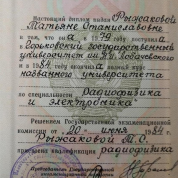 Настоящий диплом выдан Рыжаковой
Татьяне Станиславовне
в том, что она в 1979 году поступила в
Горьковский государственный
университет им. Н.И. Лобачевского
и в 1984 году окончила
названного университета
по специальности „Радиофизика
и электроника"
Решением Государственной экзаменационной
комиссии от „20" июня 1984 г.
Рыжаковой Т.С.
присвоена квалификация радиофизика